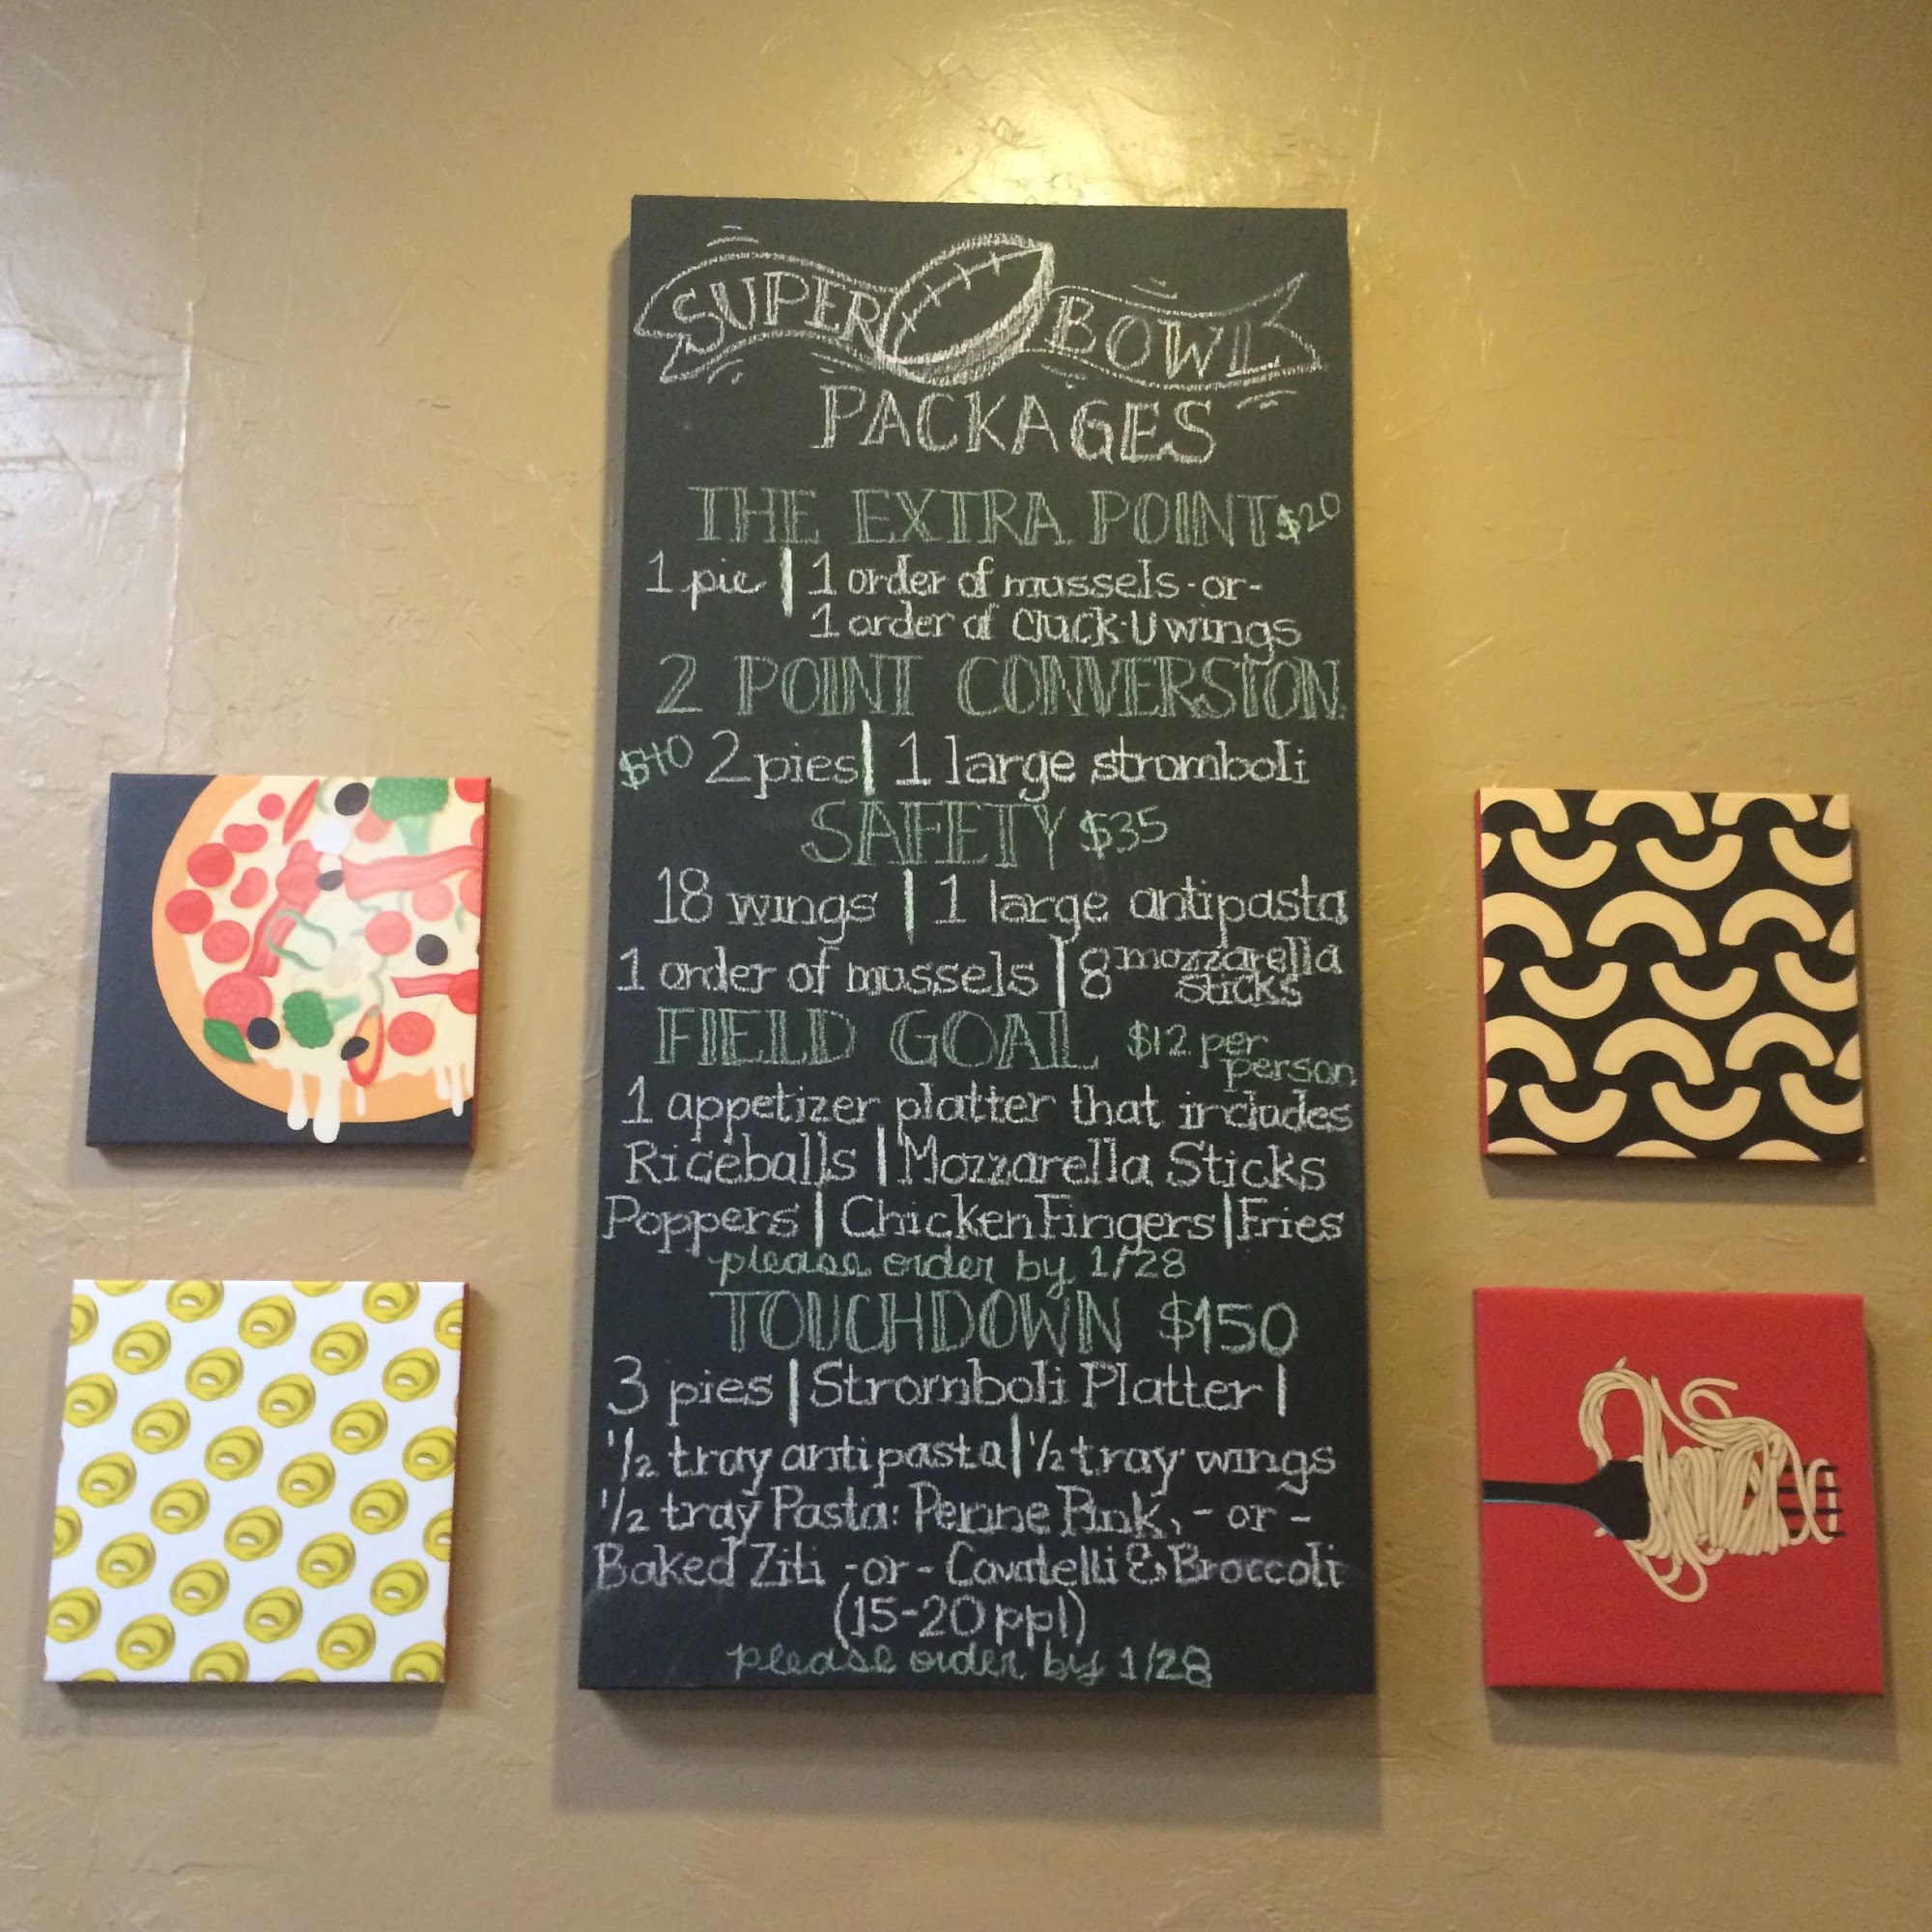 SUPER BOWL
PACKAGES
THE EXTRA POINT $20
1 pie | 1 order of mussels -or-
1 order of Cluck-U wings
2 POINT CONVERSION
$40 2 pies | 1 large stromboli
SAFETY $35
18 wings | 1 large antipasta
1 order of mussels | 8 mozzarella sticks
FIELD GOAL $12 per person
1 appetizer platter that includes
Riceballs | Mozzarella Sticks
Poppers | Chicken Fingers | Fries
please order by 1/28
TOUCHDOWN $150
3 pies | Stromboli Platter |
1/2 tray antipasta | 1/2 tray wings
1/2 tray Pasta: Penne Pink, -or-
Baked Ziti -or- Cavatelli & Broccoli
(15-20 ppl)
please order by 1/28